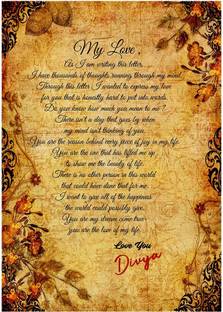 My Love,
As I am writing this letter,
I have thousands of thoughts running through my mind.
Through this letter I wanted to express my love
for you that is honestly hard to put into words.
Do you know how much you mean to me?
There isn't a day that goes by when
my mind isn't thinking of you.
You are the reason behind every piece of joy in my life.
You are the one that has lifted me up
to show me the beauty of life.
There is no other person in this world
that could have done that for me.
I want to give all of the happiness
the world could possibly give.
You are my dream come true
you are the love of my life.
Love You
Divya